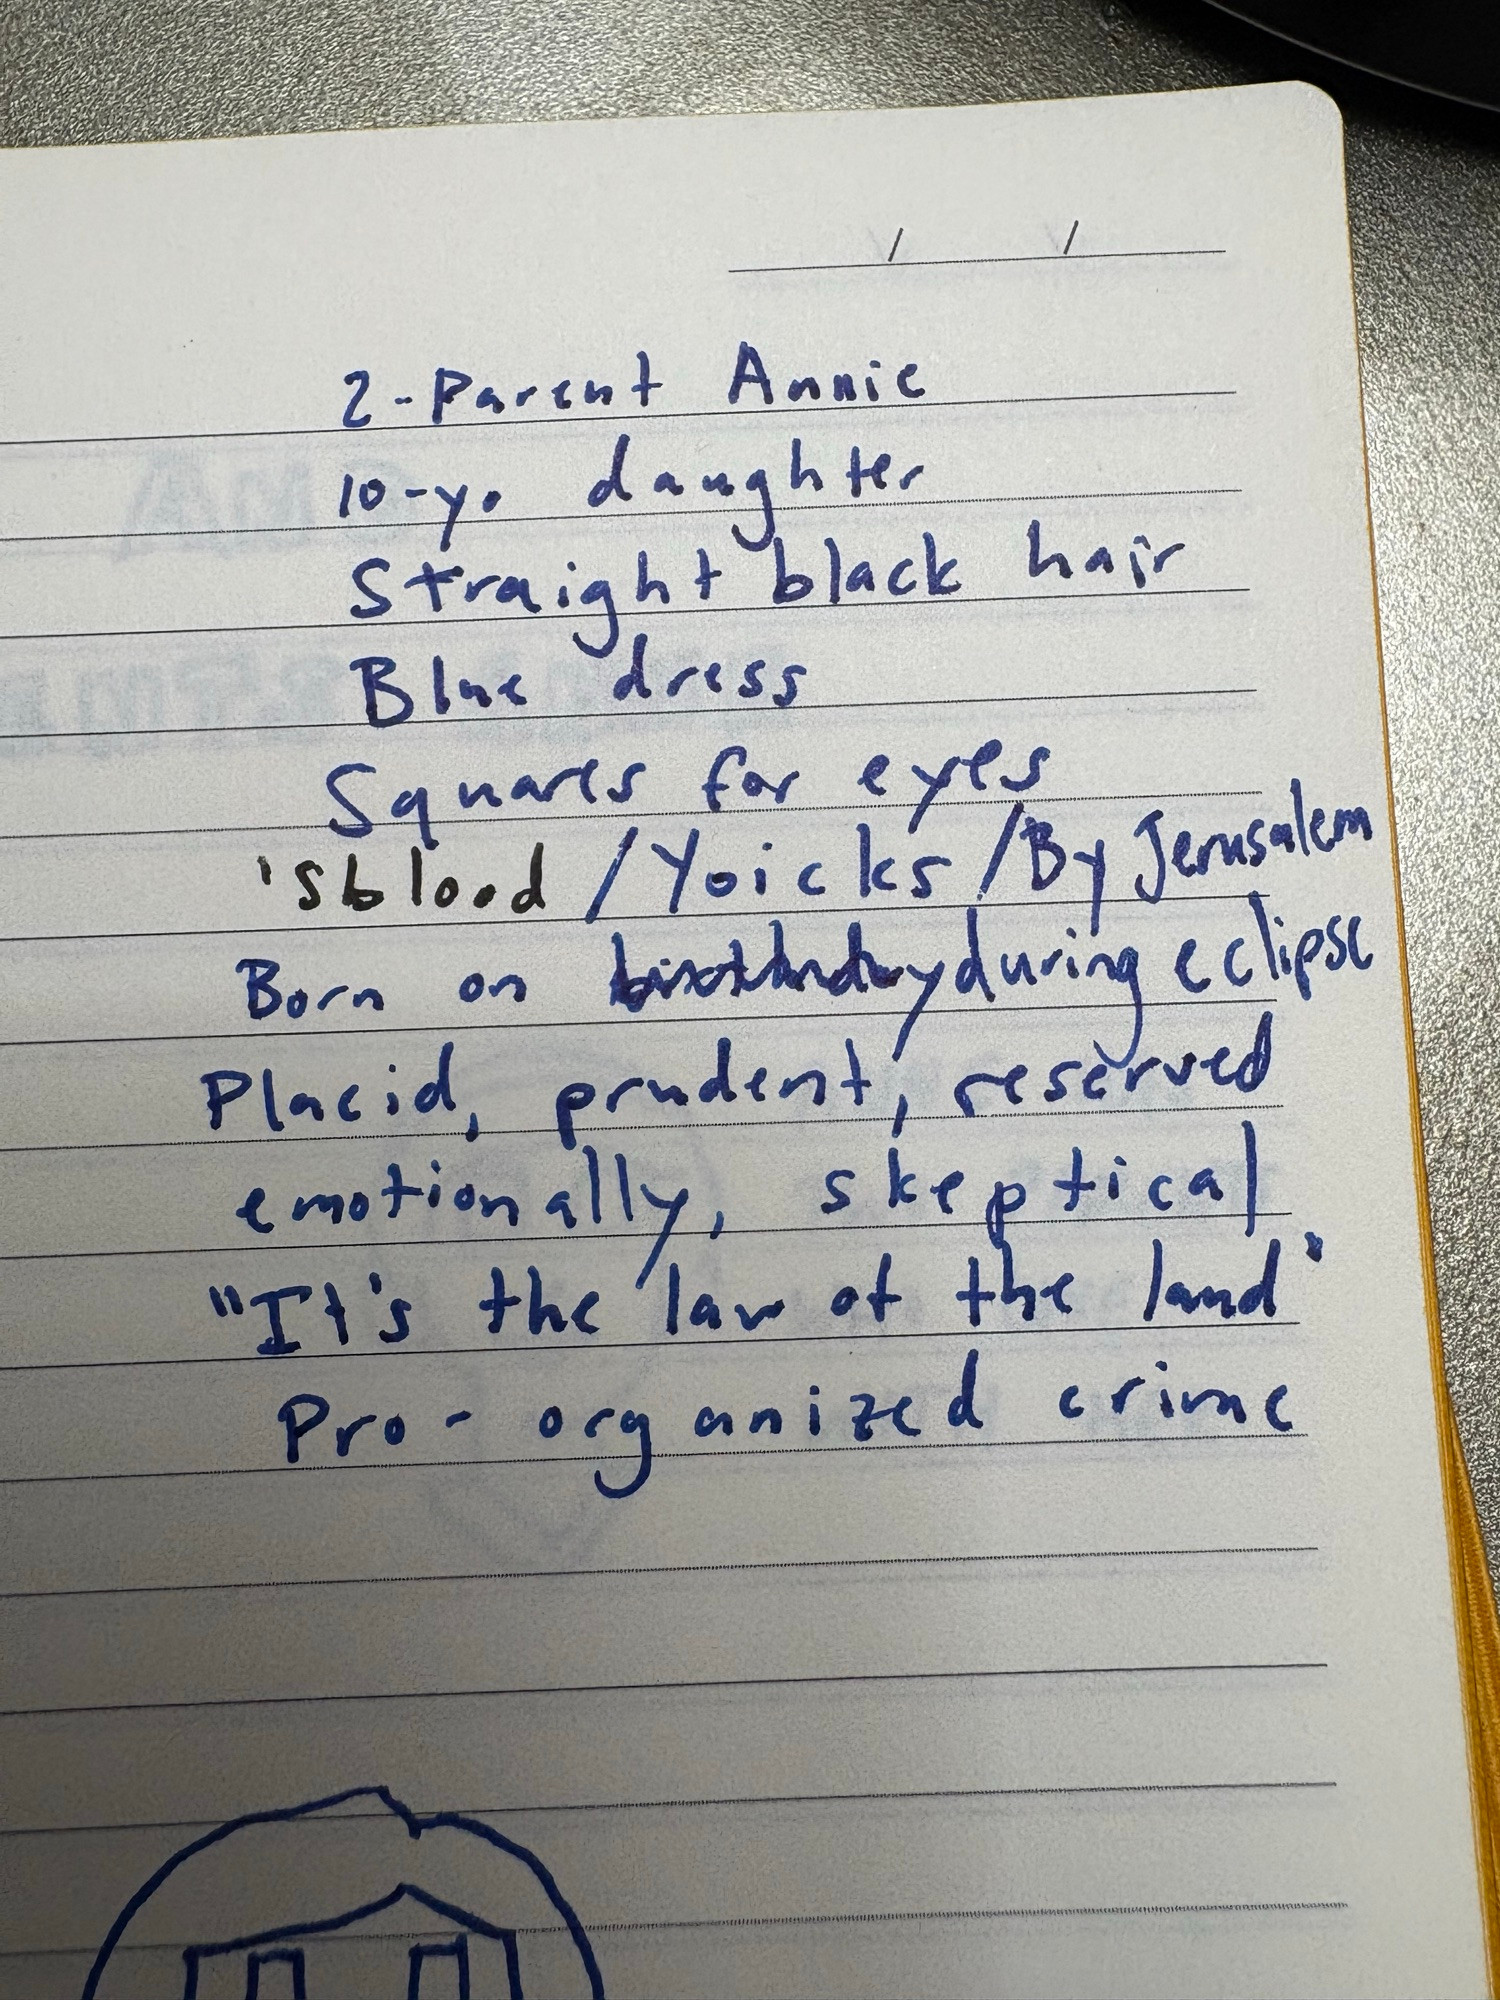 / /
2-Parent Annie
10-yo daughter
Straight black hair
Blue dress
Squares for eyes
'Sblood / Yoicks / By Jerusalem
Born on birthday during eclipse
Placid, prudent, reserved
emotionally, skeptical
"It's the law of the land"
Pro-organized crime